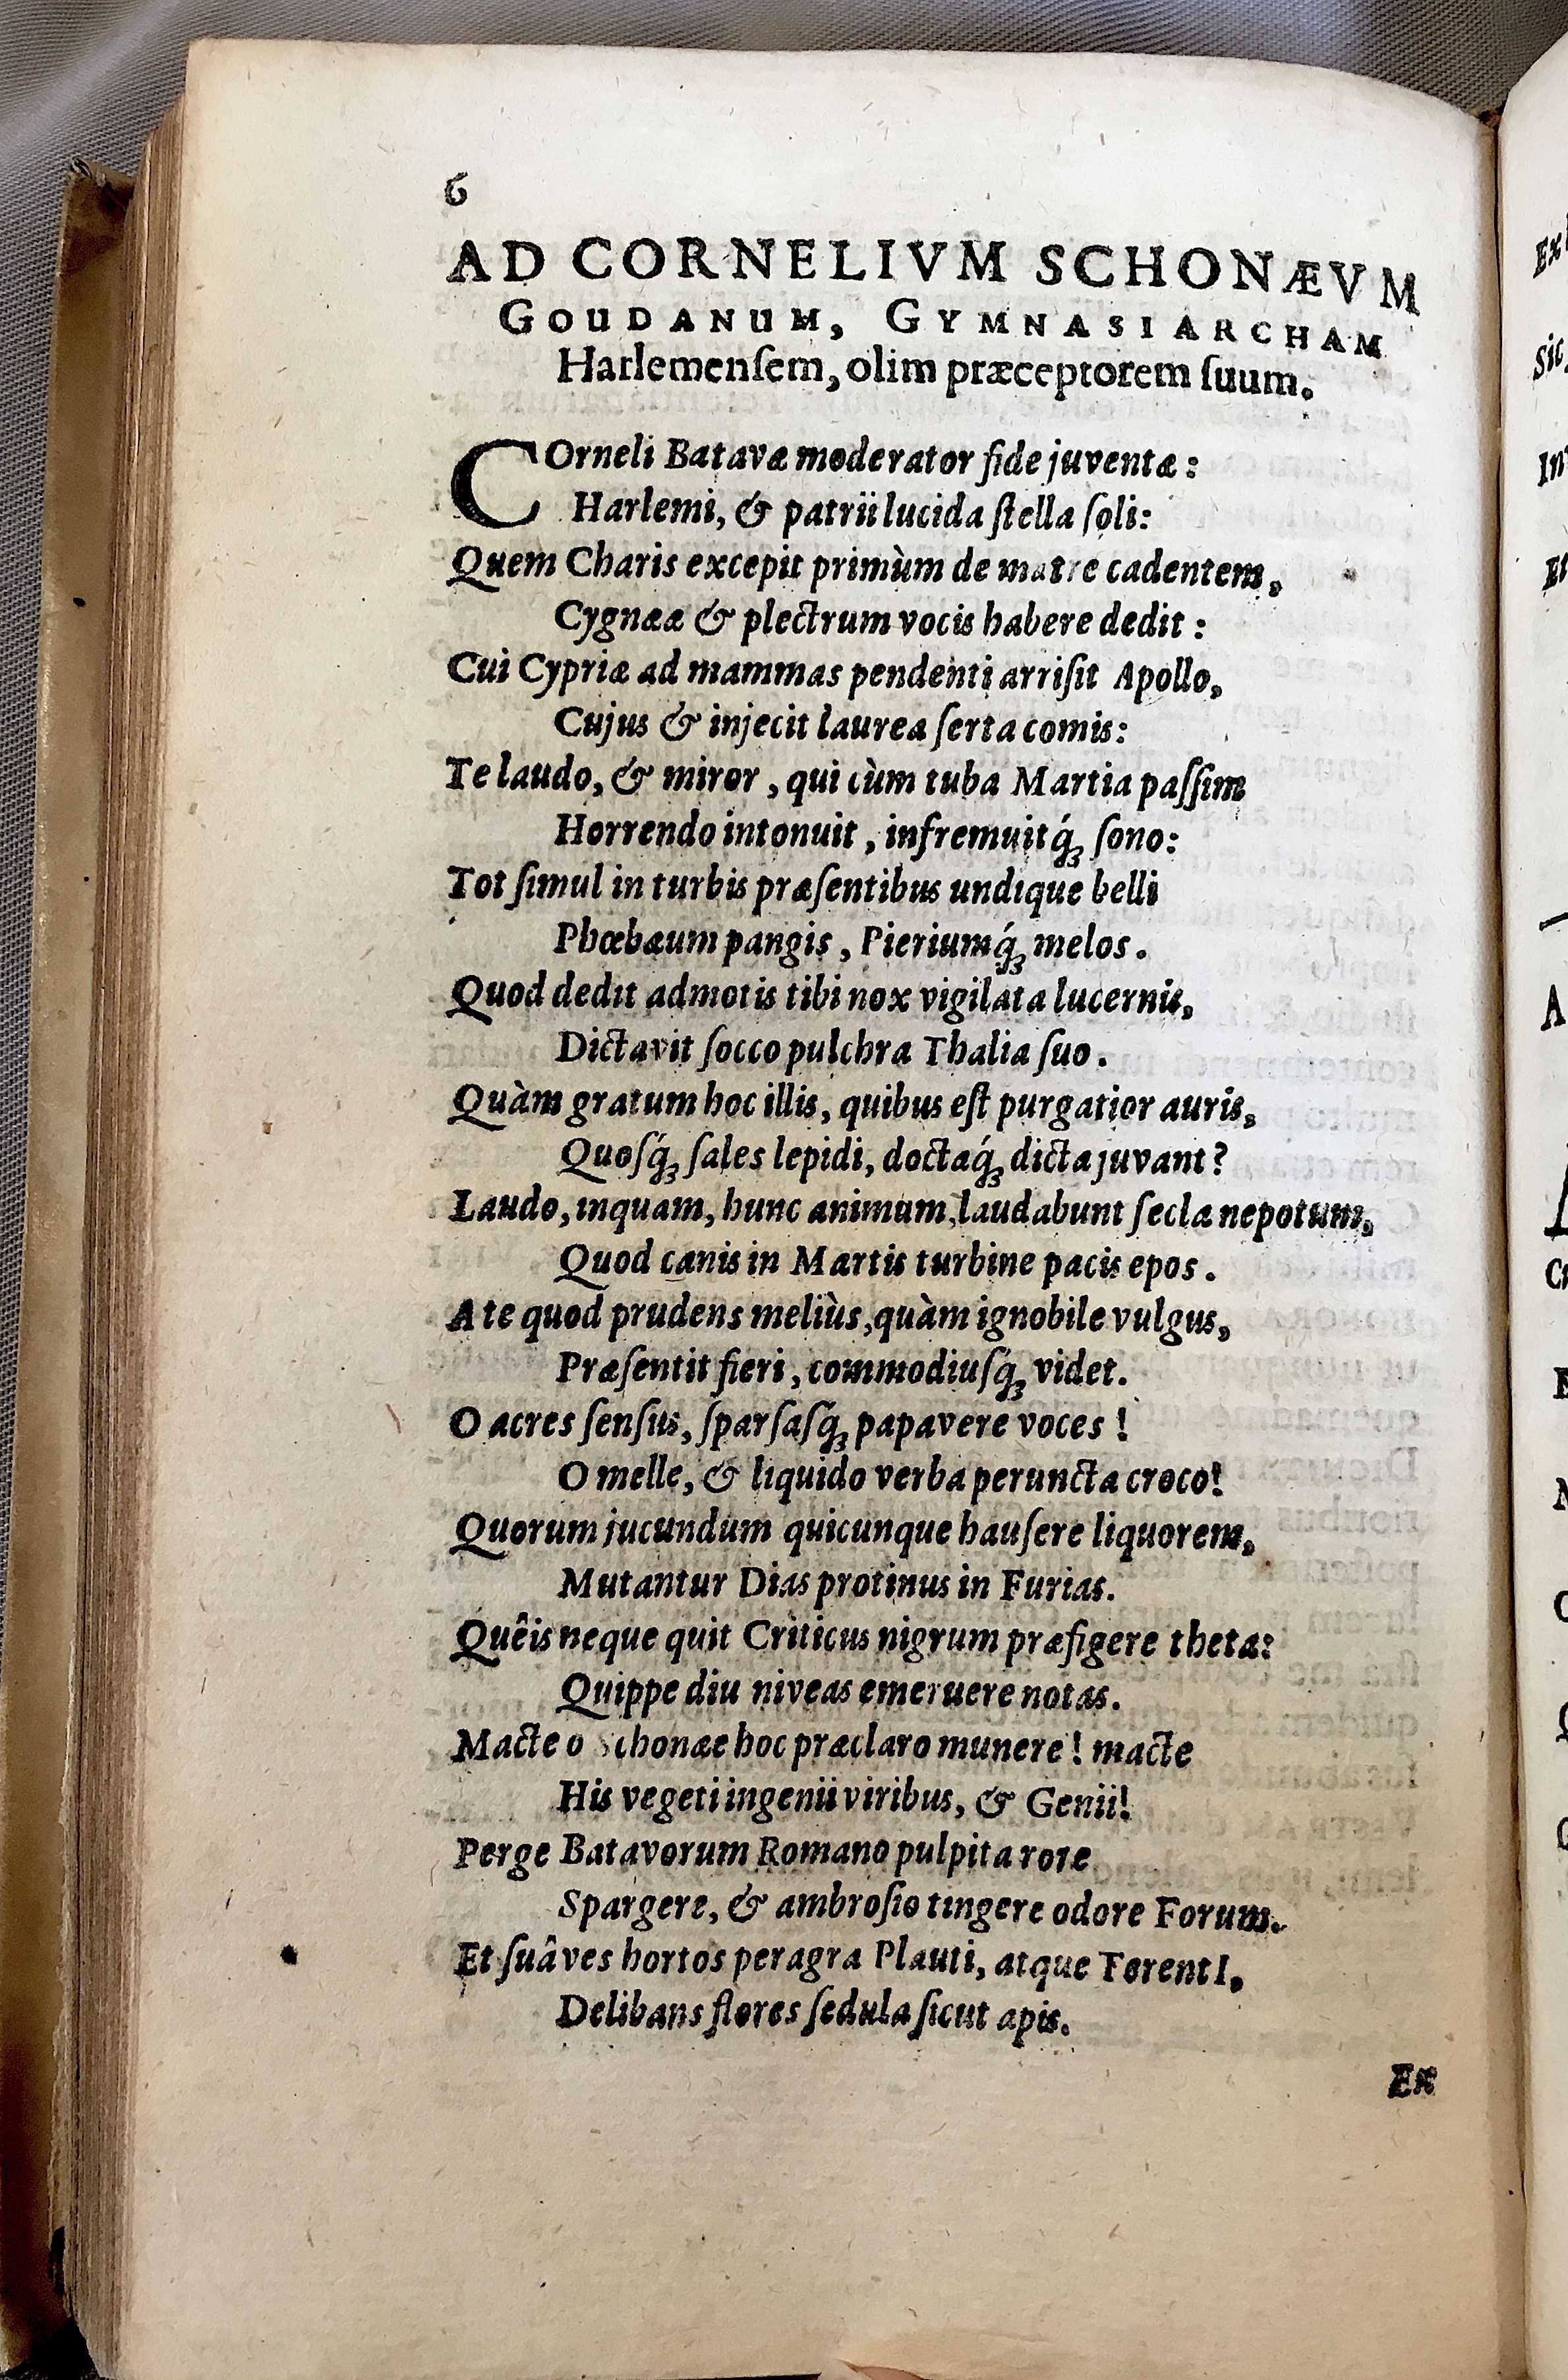 6
AD CORNELIVM SCHONÆVM
GOUDANUM, GYMNASIARCHAM
Harlemenſem, olim præceptorem ſuum.
COrneli Batavæ moderator fide juventæ:
Harlemi, & patrii lucida ſtella ſoli:
Quem Charis excepit primùm de matre cadentem,
Cygnææ & plectrum vocis habere dedit:
Cui Cypriæ ad mammas pendenti arriſit Apollo,
Cujus & injecit laurea ſerta comis:
Te laudo, & miror, qui cùm tuba Martia paſſim
Horrendo intonuit, infremuitq́ꝫ ſono:
Tot ſimul in turbis præſentibus undique belli
Phœbæum pangis, Pieriumq́ꝫ melos.
Quod dedit admotis tibi nox vigilata lucernis,
Dictavit ſocco pulchra Thalia ſuo.
Quàm gratum hoc illis, quibus eſt purgatior auris,
Quoſq́ꝫ ſales lepidi, doctaq́ꝫ dicta juvant?
Laudo, inquam, hunc animum, laudabunt ſecla nepotum,
Quod canis in Martis turbine pacis epos.
A te quod prudens meliùs, quàm ignobile vulgus,
Præſentit fieri, commodiuſq́ꝫ videt.
O acres ſenſus, ſparſaſq́ꝫ papavere voces!
O melle, & liquido verba peruncta croco!
Quorum jucundum quicunque hauſere liquorem,
Mutantur Dias protinus in Furias.
Quêis neque quit Criticus nigrum præfigere theta:
Quippe diu niveas emeruere notas.
Macte o Schonæe hoc præclaro munere! macte
His vegeti ingenii viribus, & Genii!
Perge Batavorum Romano pulpita rore
Spargere, & ambroſio tingere odore Forum.
Et ſuâves hortos peragra Plauti, atque TerentI,
Delibans flores ſedula ſicut apis.
Ex